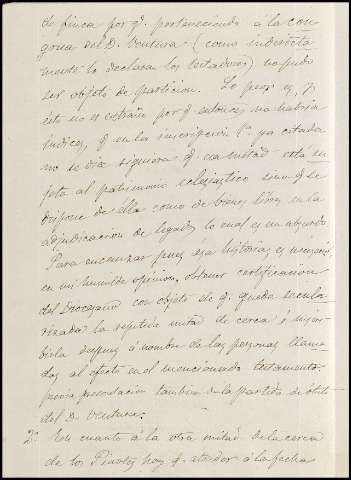 la finca por q. perteneciendo á la con
grua del D. Ventura (como indirecta
mente lo declaran los testadores) no pudo
ser objeto de particion. Lo peor es, y
esto no es estraño por q. entonces no habria
indices, q. en la inscripcion 1ª ya citada
no se dice siquiera q. esa mitad está su
jeta al patrimonio eclesiastico sino q. se
dispone de ella como de bienes libres en la
adjudicacion de legados lo cual es un absurdo
Para encauzar pues esa historia, es necesario
en mi humilde opinion, obtener certificacion
del Diocesano con objeto de q. quede secula
rizada la repetida mitad de cerca é inscri
birla despues á nombre de las personas llama
das al efecto en el mencionado testamento
previa presentacion tambien de la partida de óbito
del D. Ventura.
2º En cuanto á la otra mitad de la cerca
de los Pinotes hay q. atender á la fecha